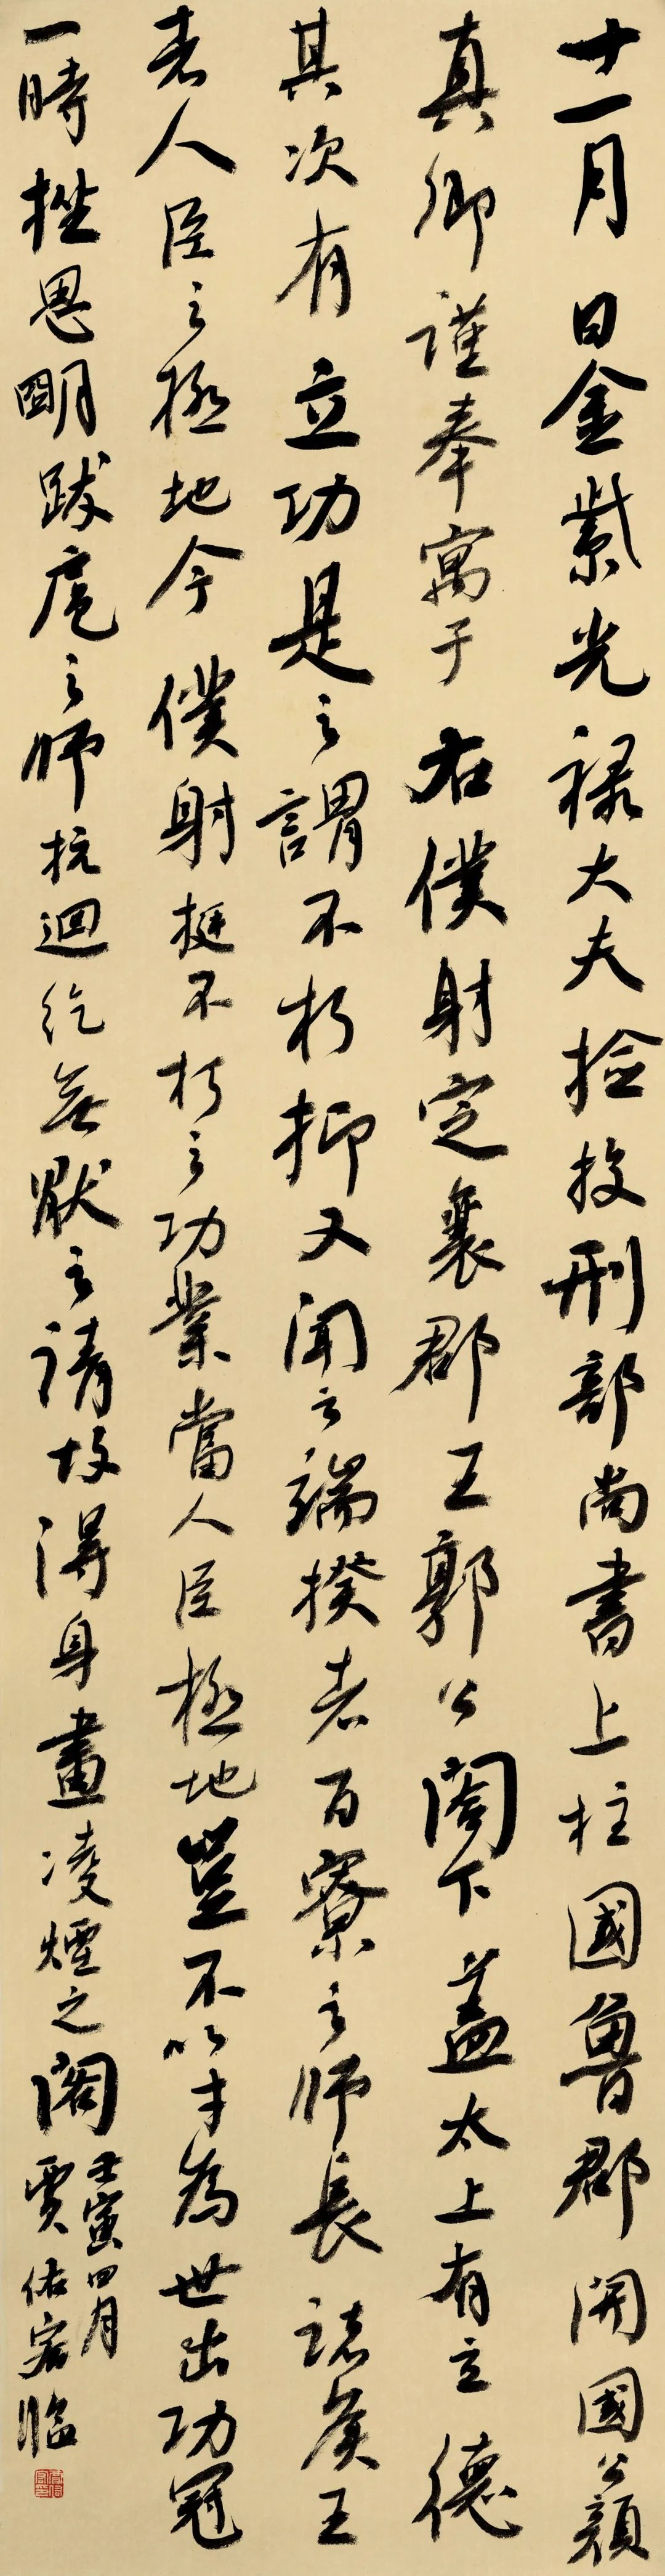 十一月日金紫光禄大夫撿挍刑部尚書上柱國魯郡開國公顔
真卿謹奉寓于右僕射定襄郡王郭公閤下蓋太上有立德
其次有立功是之謂不朽抑又聞之端揆者百寮之師長諸矦王
者人臣之極地今僕射挺不朽之功業當人臣極地豈不以才為世出功冠
一時挫思明跋扈之師抗迴紇無猒之請故得身畫凌煙之閣
壬寅四月
賈佑宏臨